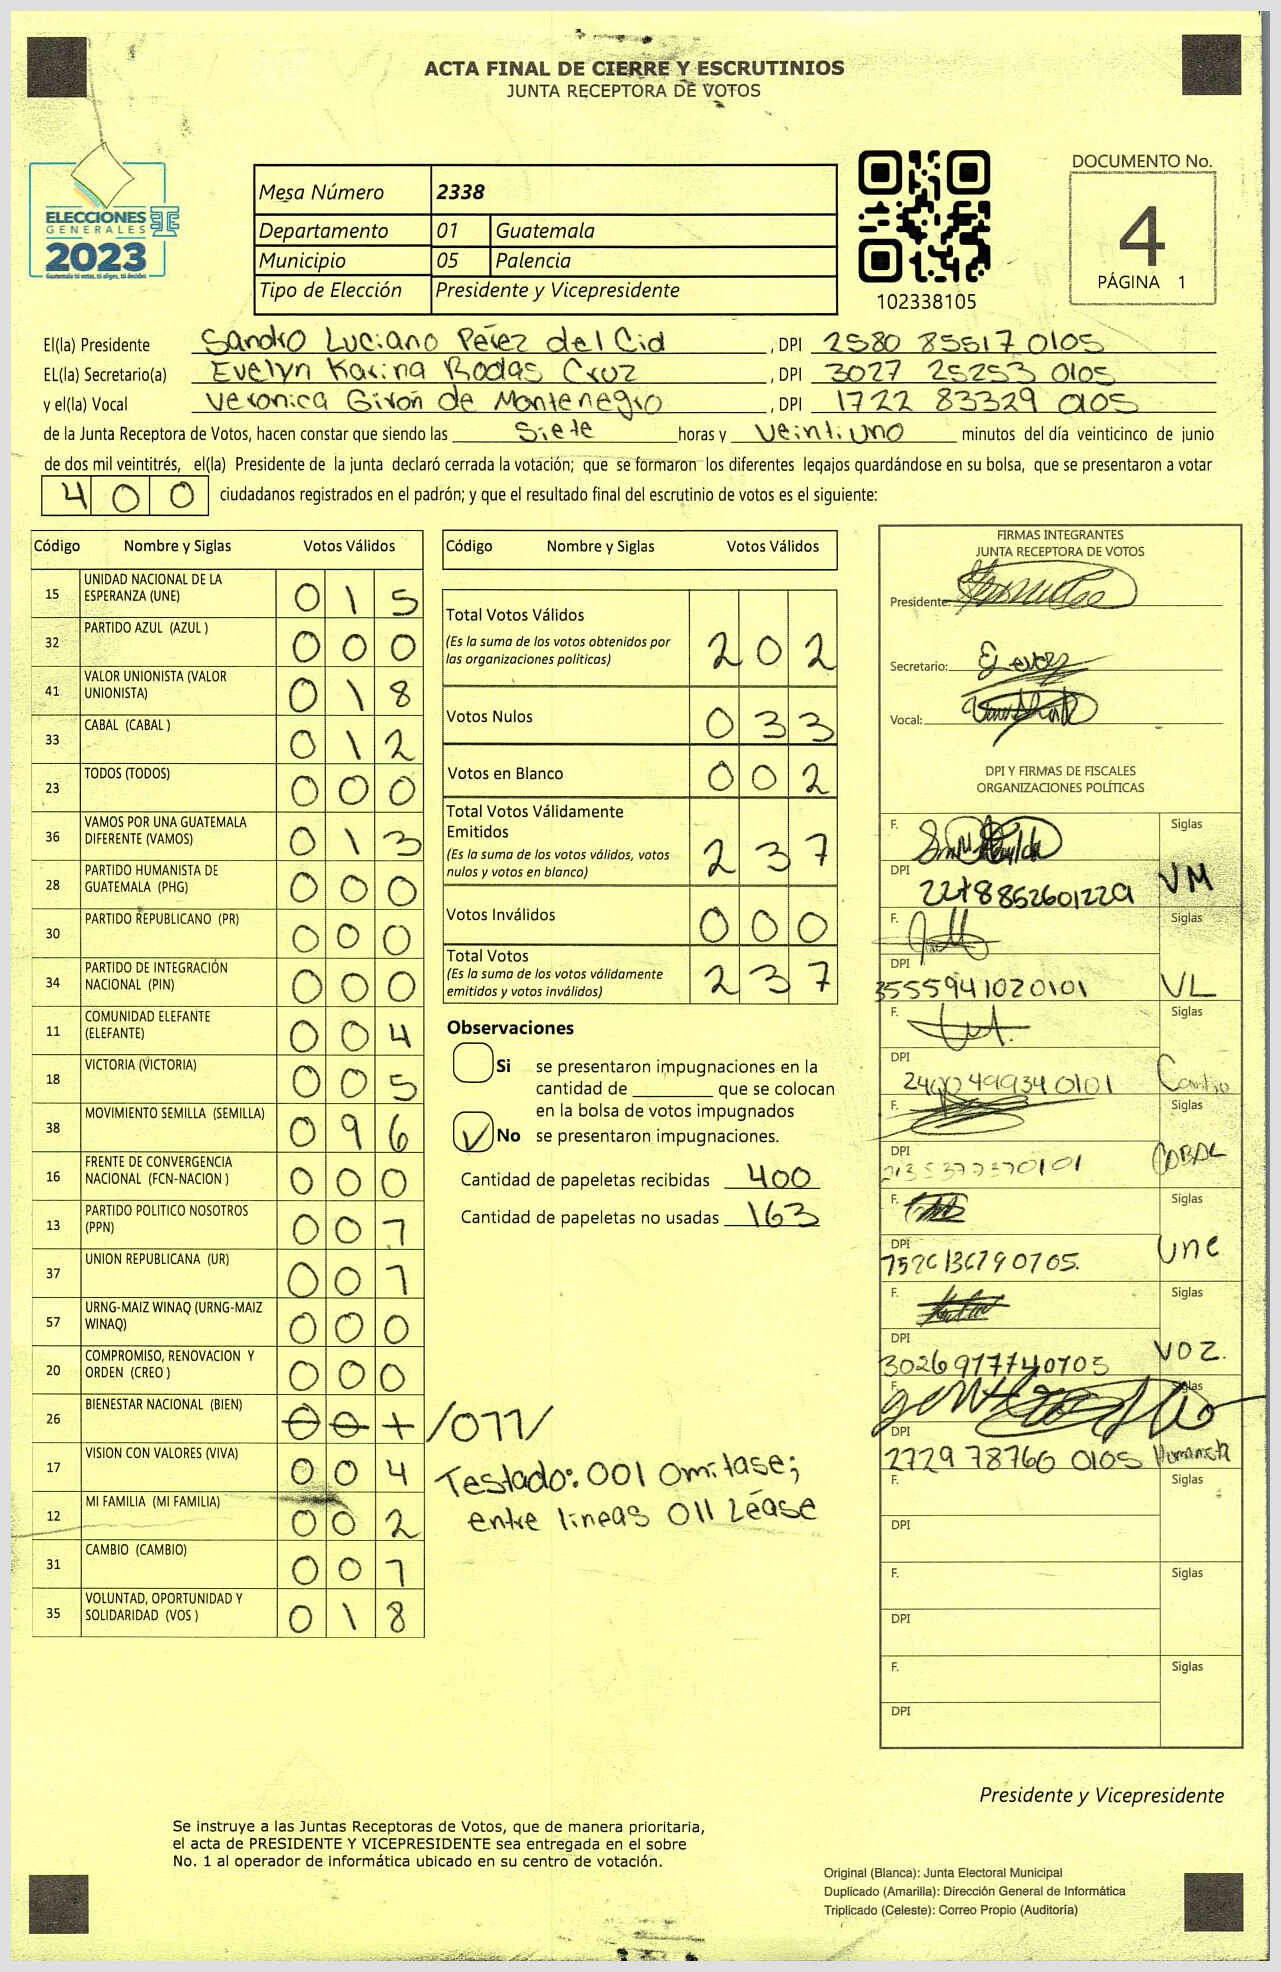 ACTA FINAL DE CIERRE Y ESCRUTINIOS
JUNTA RECEPTORA DE VOTOS
ELECCIONES
GENERALES
2023
Guatemala tú votas, tú eliges, tú decides
Mesa Número 2338
Departamento 01 Guatemala
Municipio 05 Palencia
Tipo de Elección Presidente y Vicepresidente
102338105
DOCUMENTO No.
4
PÁGINA 1
El(la) Presidente Sandro Luciano Pérez del Cid , DPI 2580 85517 0105
EL(la) Secretario(a) Evelyn Karina Rodas Cruz , DPI 3027 25253 0105
y el(la) Vocal Veronica Girón de Montenegro , DPI 1722 83329 0105
de la Junta Receptora de Votos, hacen constar que siendo las Siete horas y Veintiuno minutos del día veinticinco de junio
de dos mil veintitrés, el(la) Presidente de la junta declaró cerrada la votación; que se formaron los diferentes legajos guardándose en su bolsa, que se presentaron a votar
400 ciudadanos registrados en el padrón; y que el resultado final del escrutinio de votos es el siguiente:
Código Nombre y Siglas Votos Válidos
15 UNIDAD NACIONAL DE LA ESPERANZA (UNE) 015
32 PARTIDO AZUL (AZUL ) 000
41 VALOR UNIONISTA (VALOR UNIONISTA) 018
33 CABAL (CABAL ) 012
23 TODOS (TODOS) 000
36 VAMOS POR UNA GUATEMALA DIFERENTE (VAMOS) 013
28 PARTIDO HUMANISTA DE GUATEMALA (PHG) 000
30 PARTIDO REPUBLICANO (PR) 000
34 PARTIDO DE INTEGRACIÓN NACIONAL (PIN) 000
11 COMUNIDAD ELEFANTE (ELEFANTE) 004
18 VICTORIA (VICTORIA) 005
38 MOVIMIENTO SEMILLA (SEMILLA) 096
16 FRENTE DE CONVERGENCIA NACIONAL (FCN-NACION ) 000
13 PARTIDO POLITICO NOSOTROS (PPN) 007
37 UNION REPUBLICANA (UR) 001
57 URNG-MAIZ WINAQ (URNG-MAIZ WINAQ) 000
20 COMPROMISO, RENOVACION Y ORDEN (CREO ) 000
26 BIENESTAR NACIONAL (BIEN) 00 /011/
17 VISION CON VALORES (VIVA) 004
12 MI FAMILIA (MI FAMILIA) 002
31 CAMBIO (CAMBIO) 007
35 VOLUNTAD, OPORTUNIDAD Y SOLIDARIDAD (VOS ) 018
Testado: 001 Omitase;
entre lineas 011 Léase
Código Nombre y Siglas Votos Válidos
Total Votos Válidos 202
(Es la suma de los votos obtenidos por
las organizaciones políticas)
Votos Nulos 033
Votos en Blanco 002
Total Votos Válidamente
Emitidos 237
(Es la suma de los votos válidos, votos
nulos y votos en blanco)
Votos Inválidos 000
Total Votos 237
(Es la suma de los votos válidamente
emitidos y votos inválidos)
Observaciones
Si se presentaron impugnaciones en la
cantidad de ________ que se colocan
en la bolsa de votos impugnados
No se presentaron impugnaciones.
Cantidad de papeletas recibidas 400
Cantidad de papeletas no usadas 163
FIRMAS INTEGRANTES
JUNTA RECEPTORA DE VOTOS
Presidente:
Secretario:
Vocal:
DPI Y FIRMAS DE FISCALES
ORGANIZACIONES POLÍTICAS
F. Siglas
DPI VM
F. Siglas
DPI 3555941020101 VL
F. Siglas
DPI 2400499340101
F. Siglas
DPI CABAL
F. Siglas
DPI une
F. Siglas
DPI 3026977740705 VOZ.
F. Siglas
DPI 2729 78760 0105 Humanista
F. Siglas
DPI
F. Siglas
DPI
F. Siglas
DPI
Presidente y Vicepresidente
Se instruye a las Juntas Receptoras de Votos, que de manera prioritaria,
el acta de PRESIDENTE Y VICEPRESIDENTE sea entregada en el sobre
No. 1 al operador de informática ubicado en su centro de votación.
Original (Blanca): Junta Electoral Municipal
Duplicado (Amarilla): Dirección General de Informática
Triplicado (Celeste): Correo Propio (Auditoría)